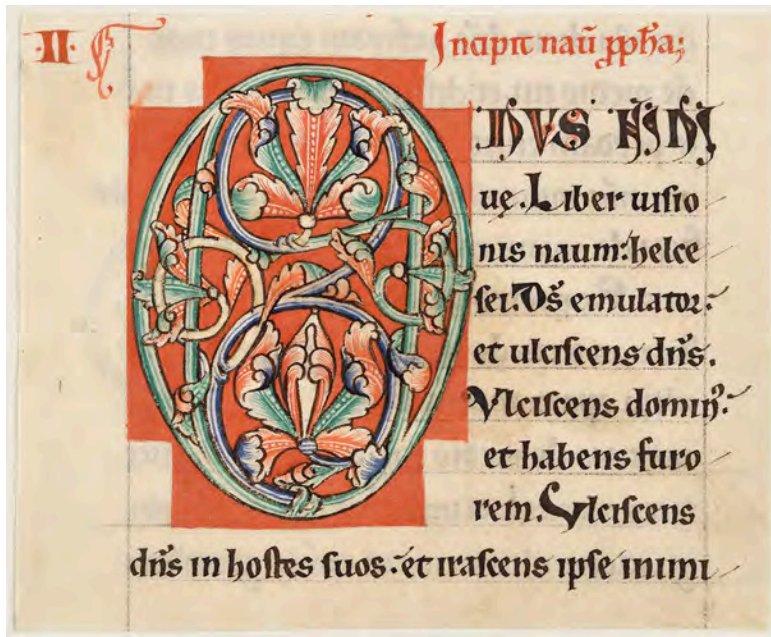 ·II· Incipit naū ꝓph̄a;
ONUS NINI
uę. Liber uisio
nis naum: helce
sei. Ds̄ emulator:
et ulciscens dn̄s.
Vlciscens domin᷒:
et habens furo
rem. Vlciscens
dn̄s in hostes suos· et irascens ipse inimi